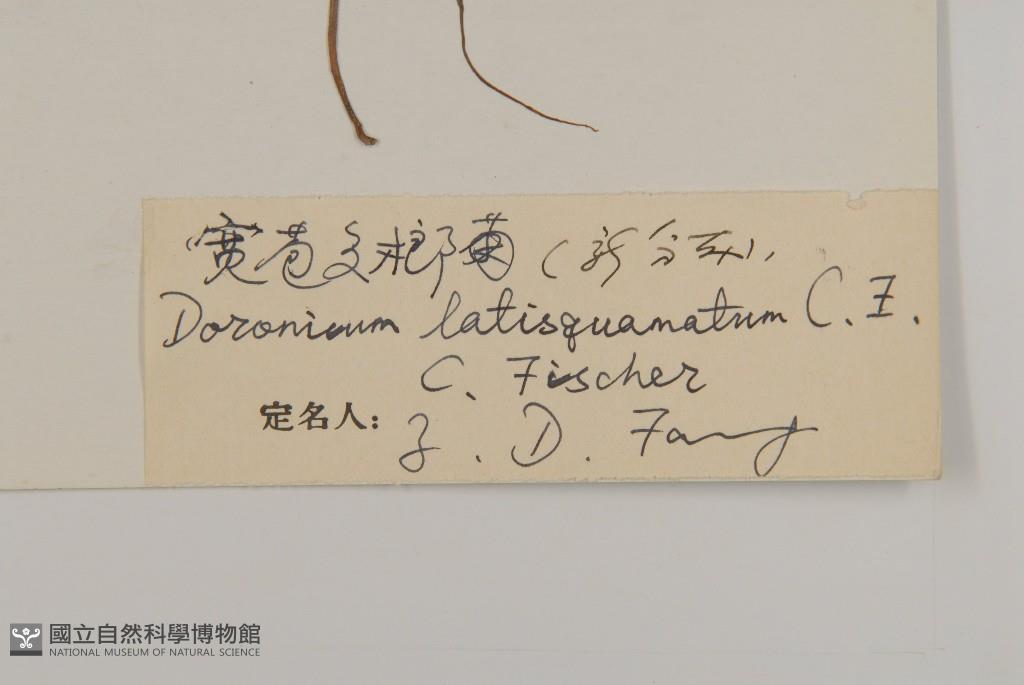 "宽苞多榔菊(新分布),
Doronicum latisquamatum C.E.
C. Fischer
定名人: Z. D. Fang
國立自然科學博物館
NATIONAL MUSEUM OF NATURAL SCIENCE